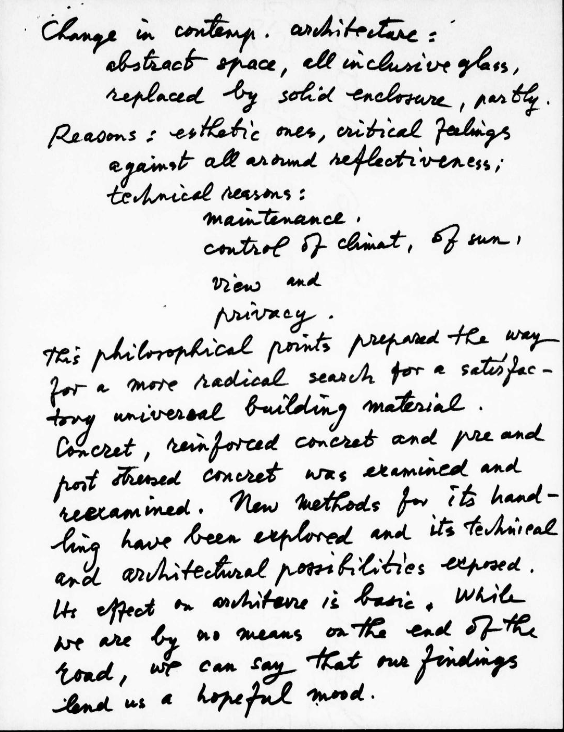 Change in contemp. architecture:
abstract space, all inclusive glass,
replaced by solid enclosure, partly.
Reasons: esthetic ones, critical feelings
against all around reflectiveness;
technical reasons:
maintenance.
control of climat, of sun,
view and
privacy.
This philosophical points prepared the way
for a more radical search for a satisfac-
tory universal building material.
Concret, reinforced concret and pre and
post stressed concret was examined and
reexamined. New methods for its hand-
ling have been explored and its technical
and architectural possibilities exposed.
Its effect on architecture is basic. While
we are by no means on the end of the
road, we can say that our findings
lend us a hopeful mood.